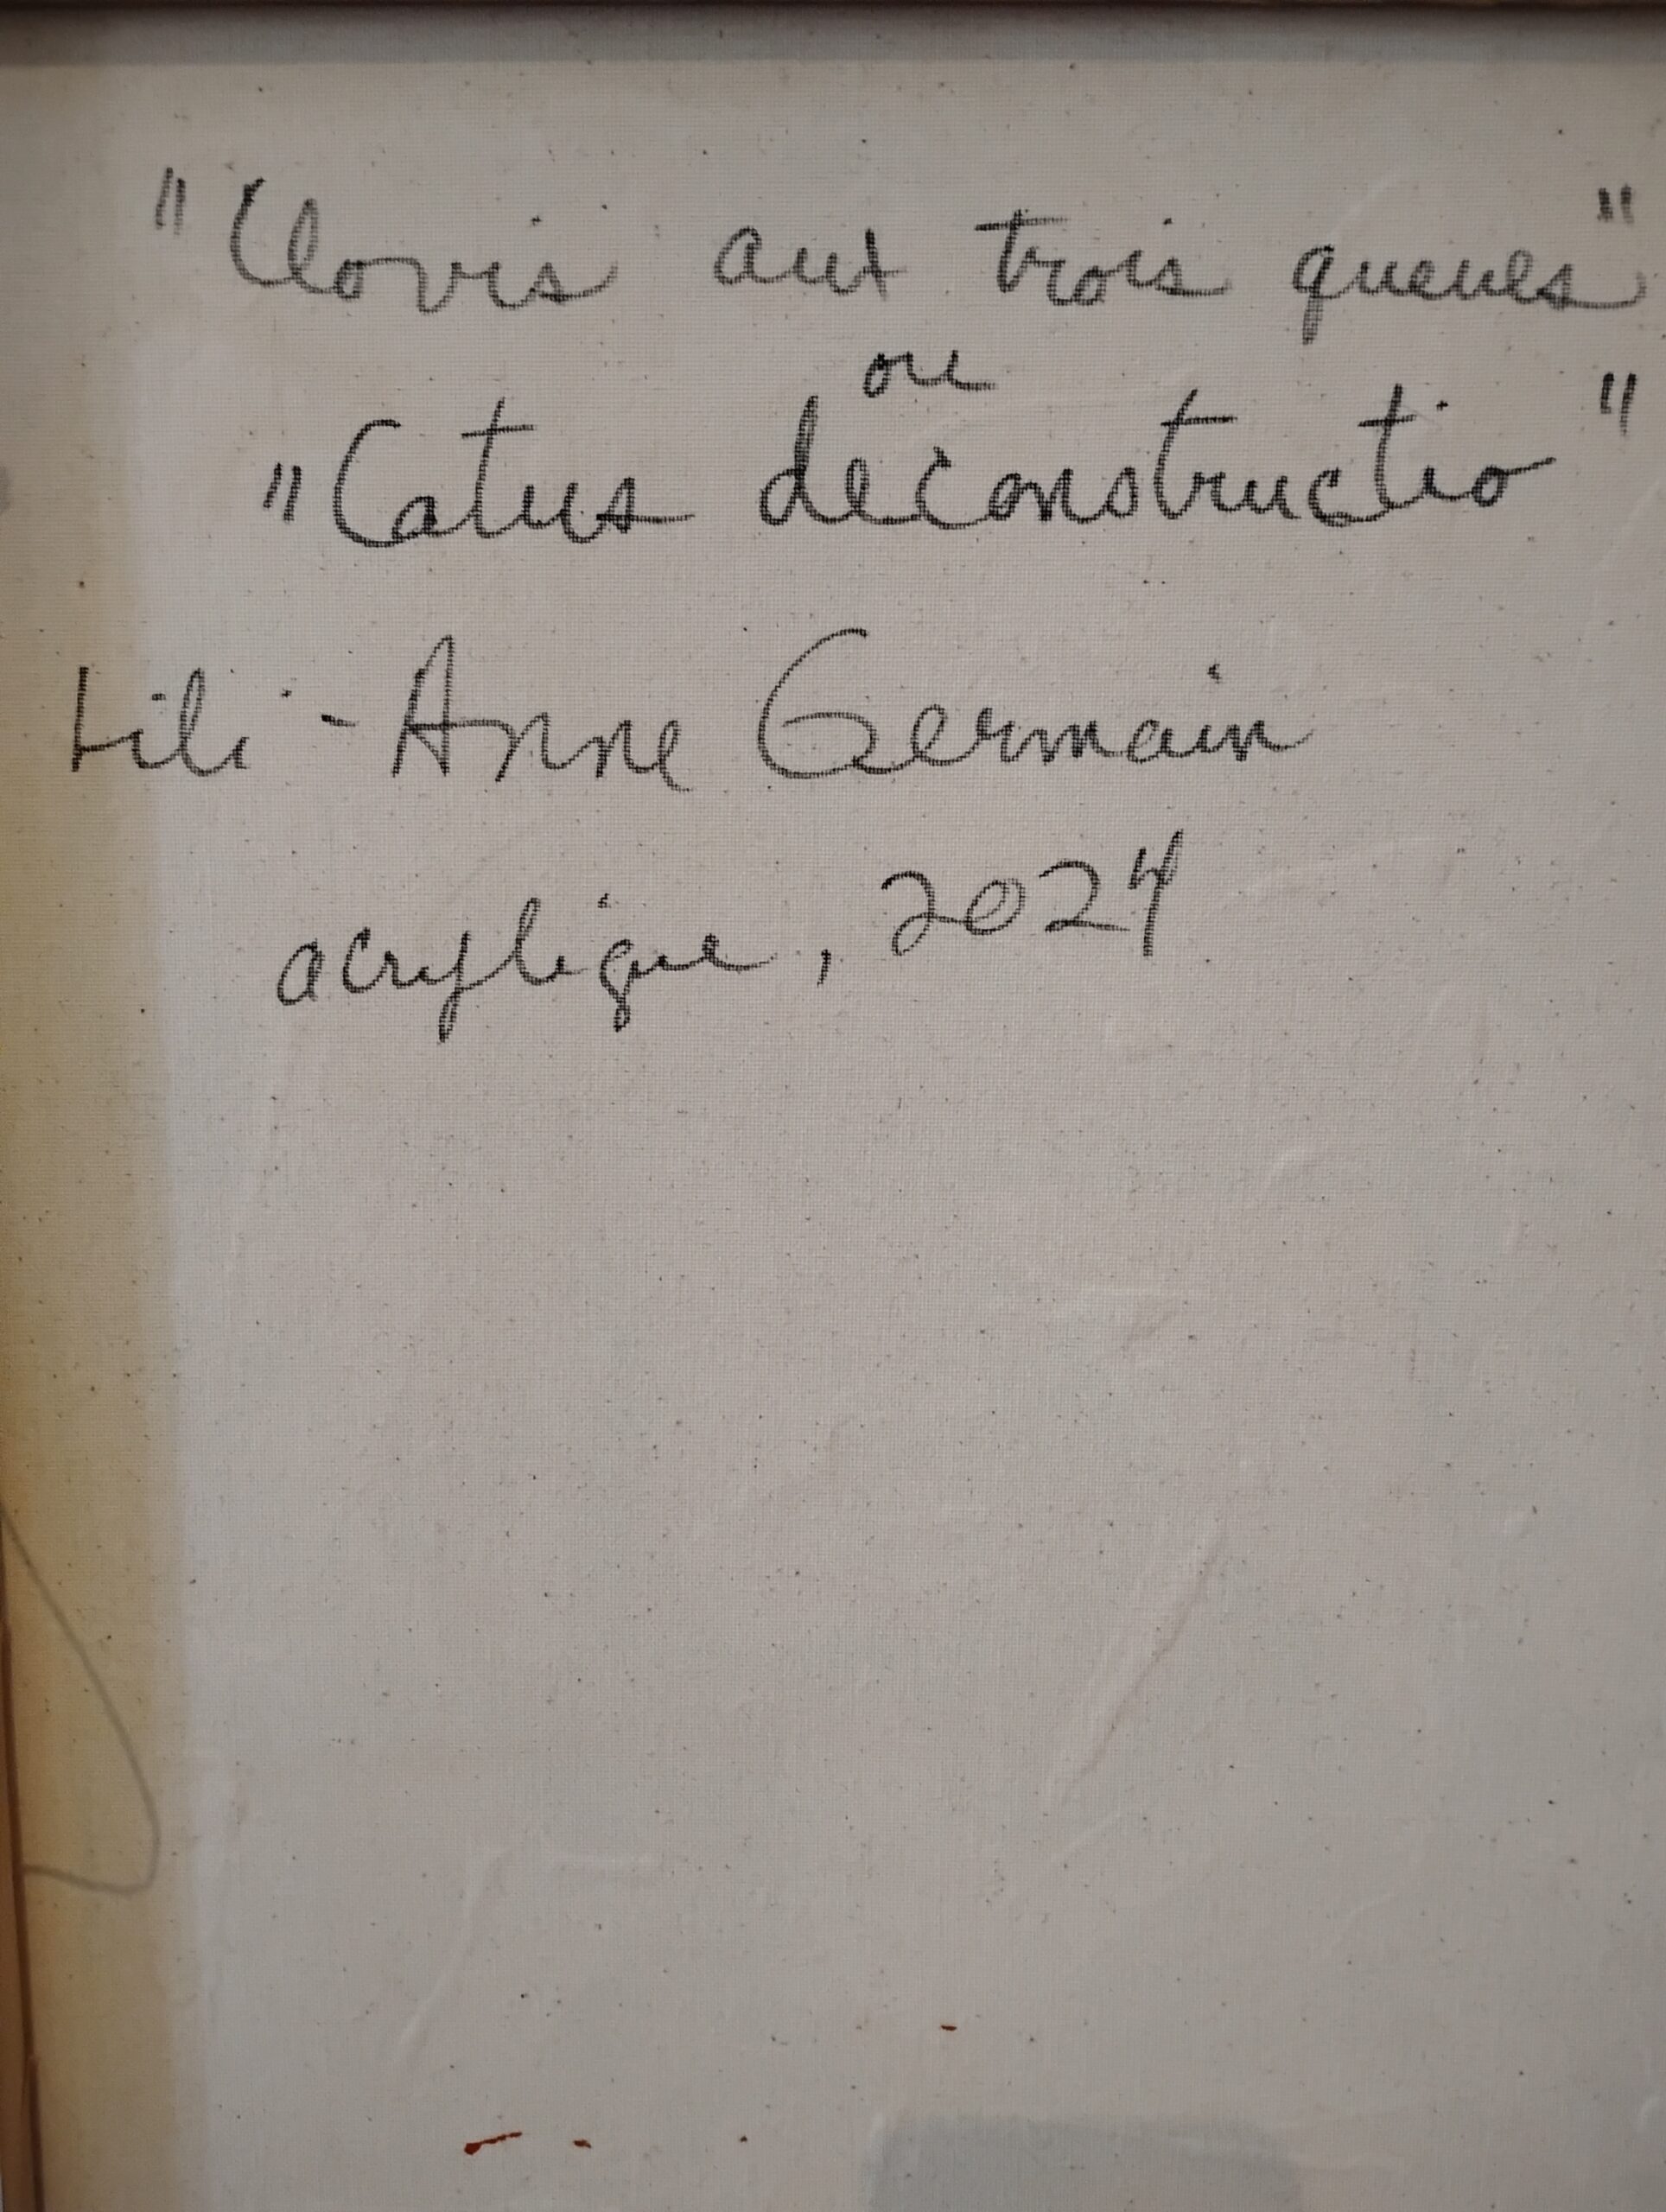 "Clovis aux trois queues"
ou
"Catus deconstructio"
Lili-Anne Germain
acrylique, 2024